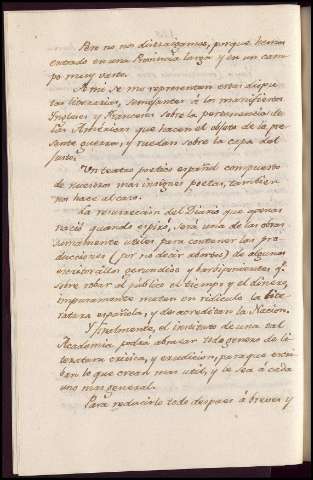 Pero no nos divirtamos, porque hemos
entrado en una Provincia larga y en un cam-
po muy vasto.
A mi se me representan estas dispu-
tas literarias, semejantes á los manifiestos
Ingleses y Franceses sobre la pertenencia de
las Américas que hacen el objeto de la pre-
sente guerra, y ruedan sobre la capa del
justo.
Un teatro poetico español compuesto
de nuestros mas insignes poetas, tambien
nos hace al caso.
La resurrección del Diario que apenas
nació quando espiró, será una de las obras
sumamente utiles para contener las pro-
ducciones (por no decir abortos) de algunos
escritorcillos gerundios y barbiponientes q.e
sobre robar al publico el tiempo y el dinero,
impunemente meten en ridiculo la lite-
ratura española, y desacreditan la Nacion.
Y finalmente, el instituto de una tal
Academia podrá abrazar todo genero de li-
teratura critica, y erudicion, para que escri-
ban lo que crean mas util, y le sea á cada
uno mas general.
Para reducirlo todo despues á breves y